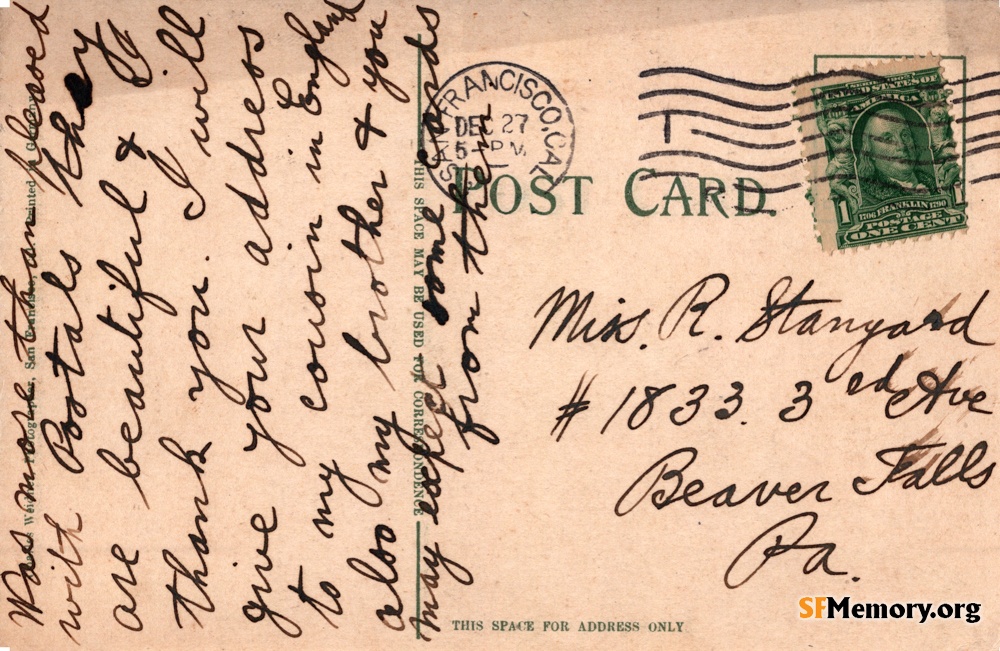 Was more than pleased
with Postals they
are beautiful & I
thank you. I will
give your address
to my cousin in England
also my brother & you
may expect some cards
from them
THIS SPACE MAY BE USED FOR CORRESPONDENCE
SAN FRANCISCO, CAL.
DEC 27
5 - P M
POST CARD.
UNITED STATES OF
AMERICA
1
1706 FRANKLIN 1790
POSTAGE
ONE CENT
Miss. R. Stanyard
# 1833. 3rd Ave
Beaver Falls
Pa.
THIS SPACE FOR ADDRESS ONLY
SFMemory.org